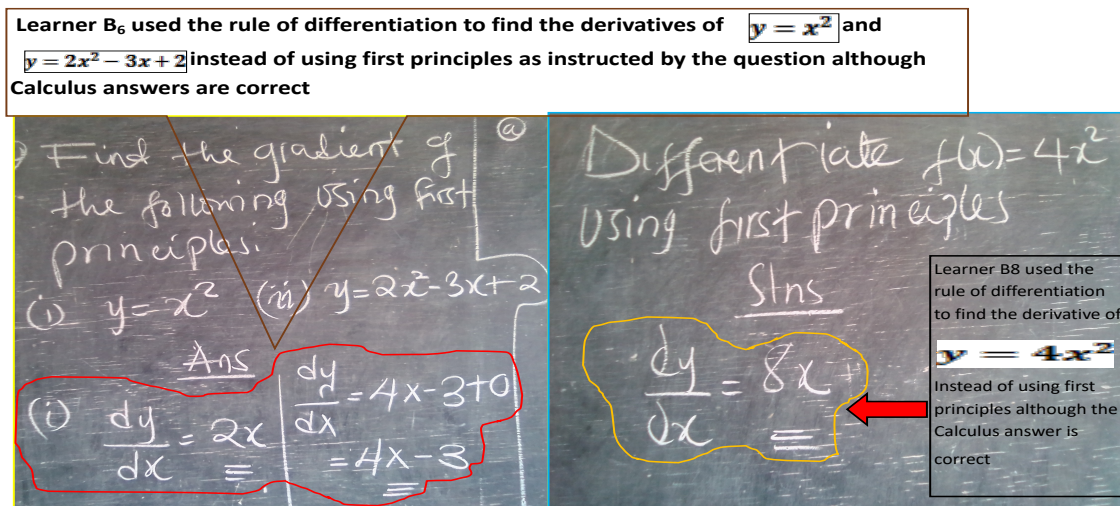 Learner B₆ used the rule of differentiation to find the derivatives of y = x² and
y = 2x² − 3x + 2 instead of using first principles as instructed by the question although
Calculus answers are correct
(a)
Find the gradient of
the following using first
principles.
(i) y = x² (ii) y = 2x² - 3x + 2
Ans
(i) dy/dx = 2x
dy/dx = 4x - 3 + 0
= 4x - 3
Differentiate f(x) = 4x²
using first principles
Slns
dy/dx = 8x
Learner B8 used the
rule of differentiation
to find the derivative of
y = 4x²
Instead of using first
principles although the
Calculus answer is
correct